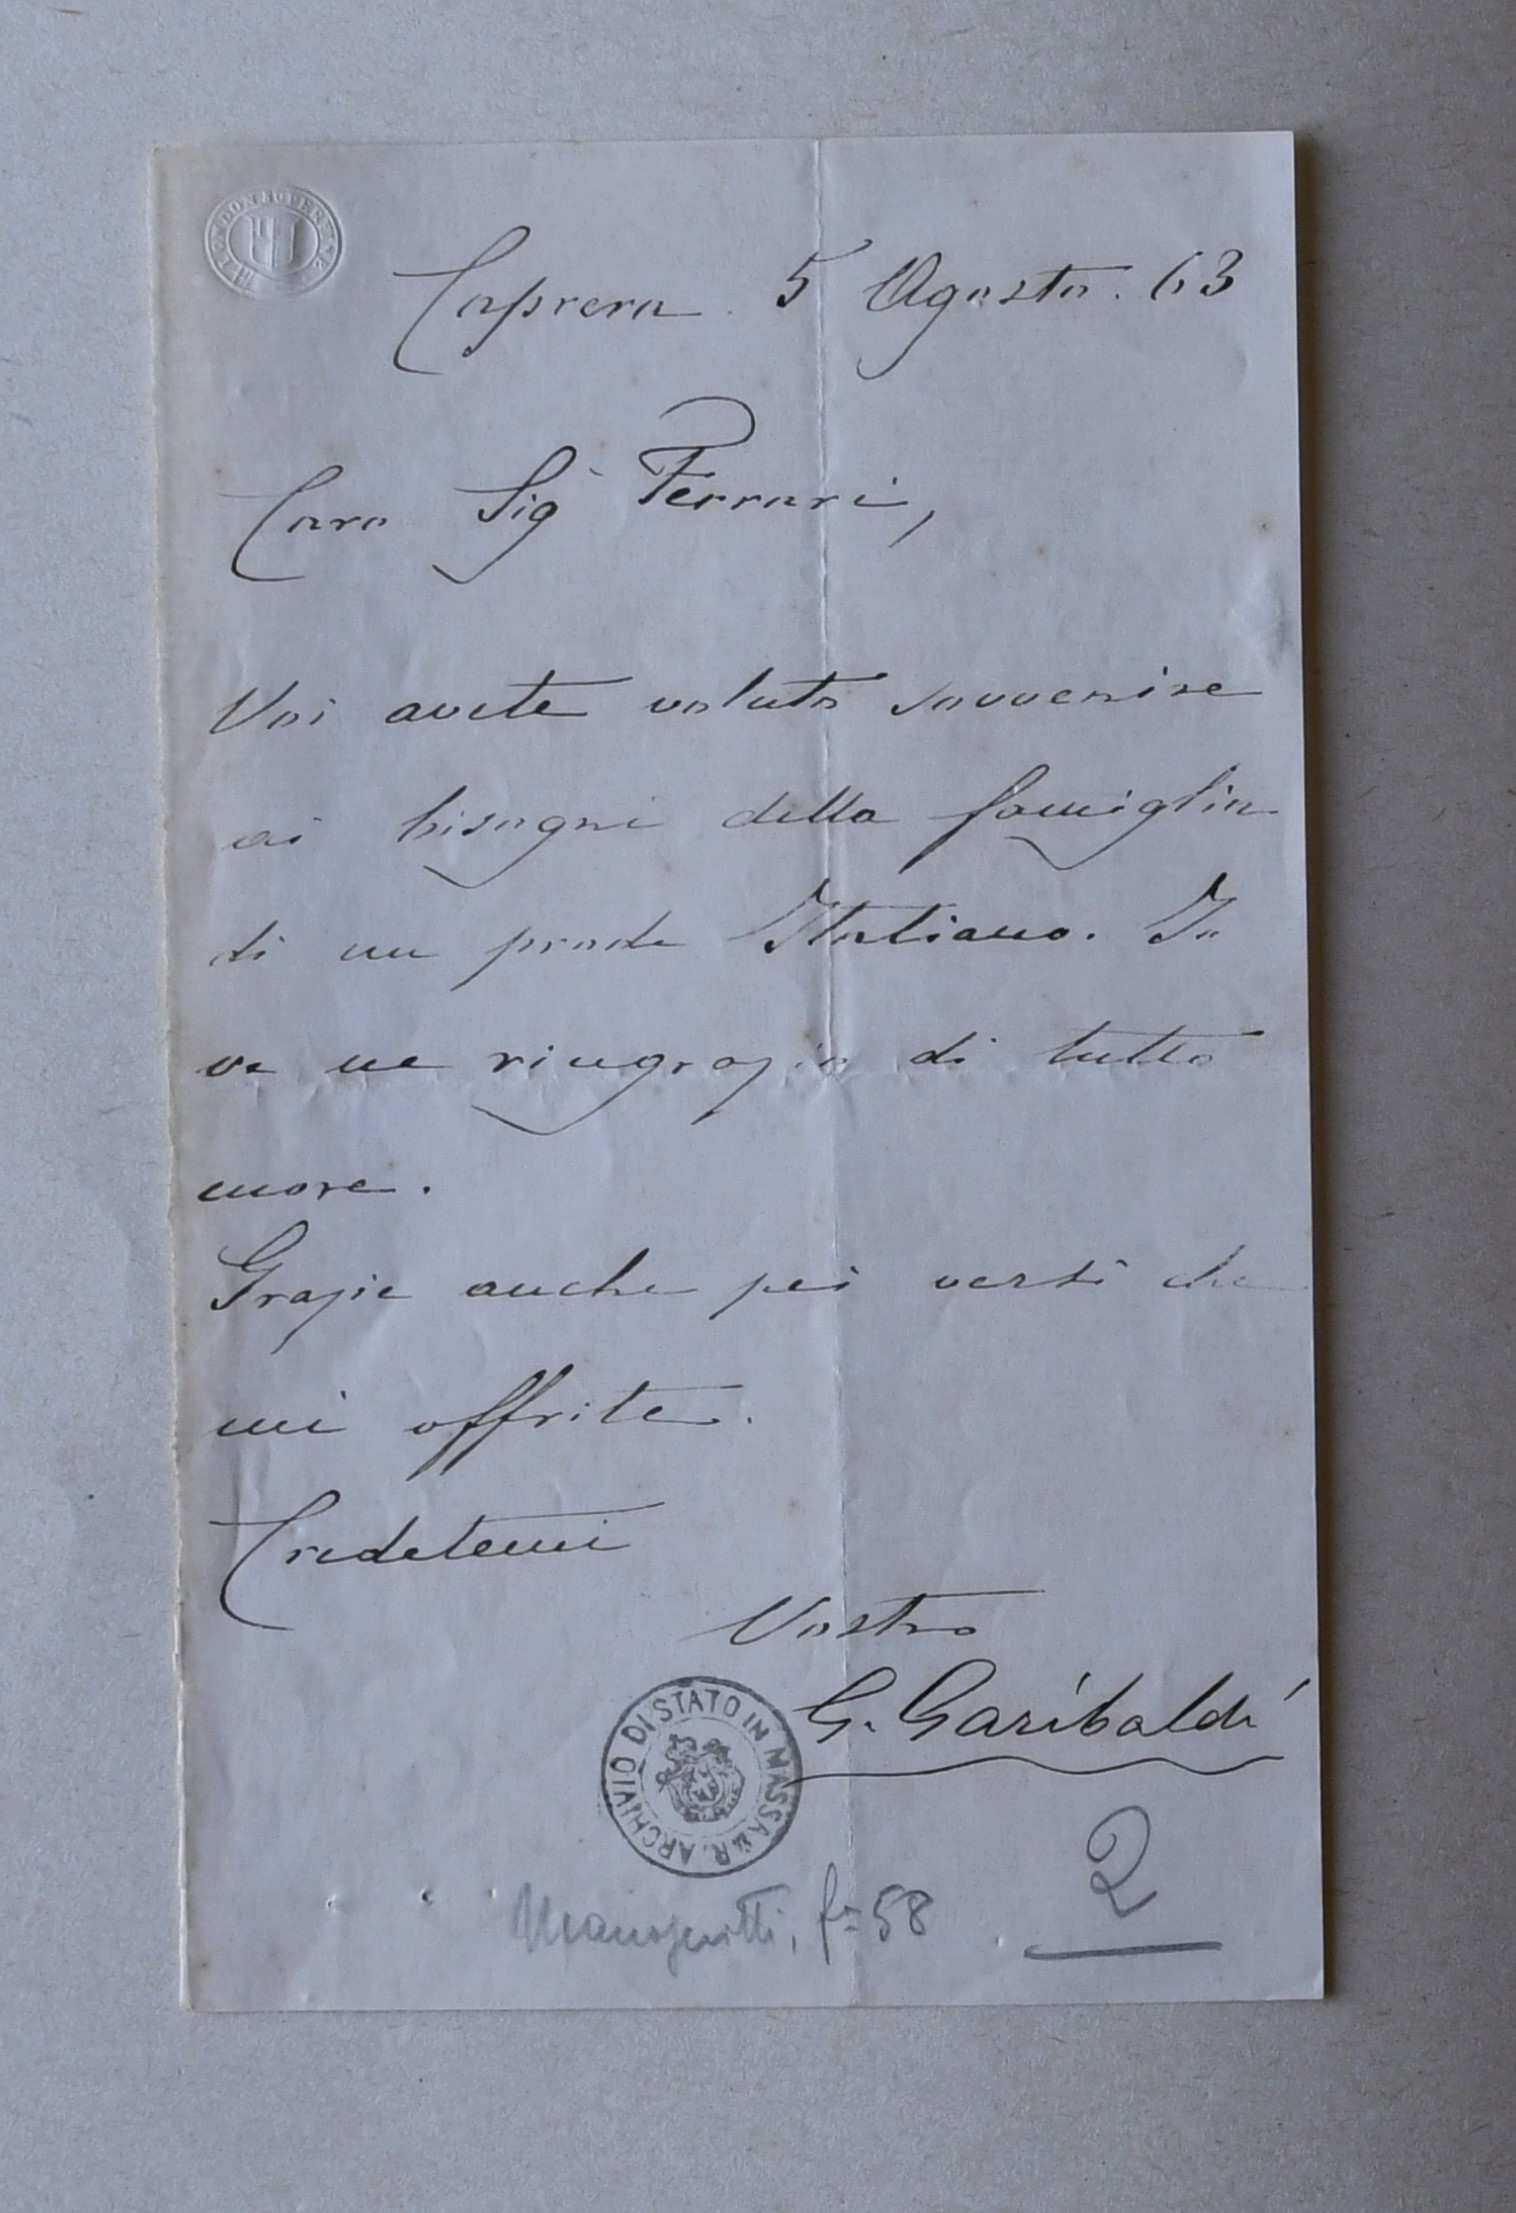 LONDON SUPERFINE
Caprera 5 Agosto. 63
Caro Sigr Ferrari,
Voi avete voluto sovvenire
ai bisogni della famiglia
di un prode Italiano. Io
ve ne ringrazio di tutto
cuore.
Grazie anche pei versi che
mi offrite.
Credetemi
Vostro
G. Garibaldi
R. ARCHIVIO DI STATO IN MASSA
Manoscritti, fa 58
2